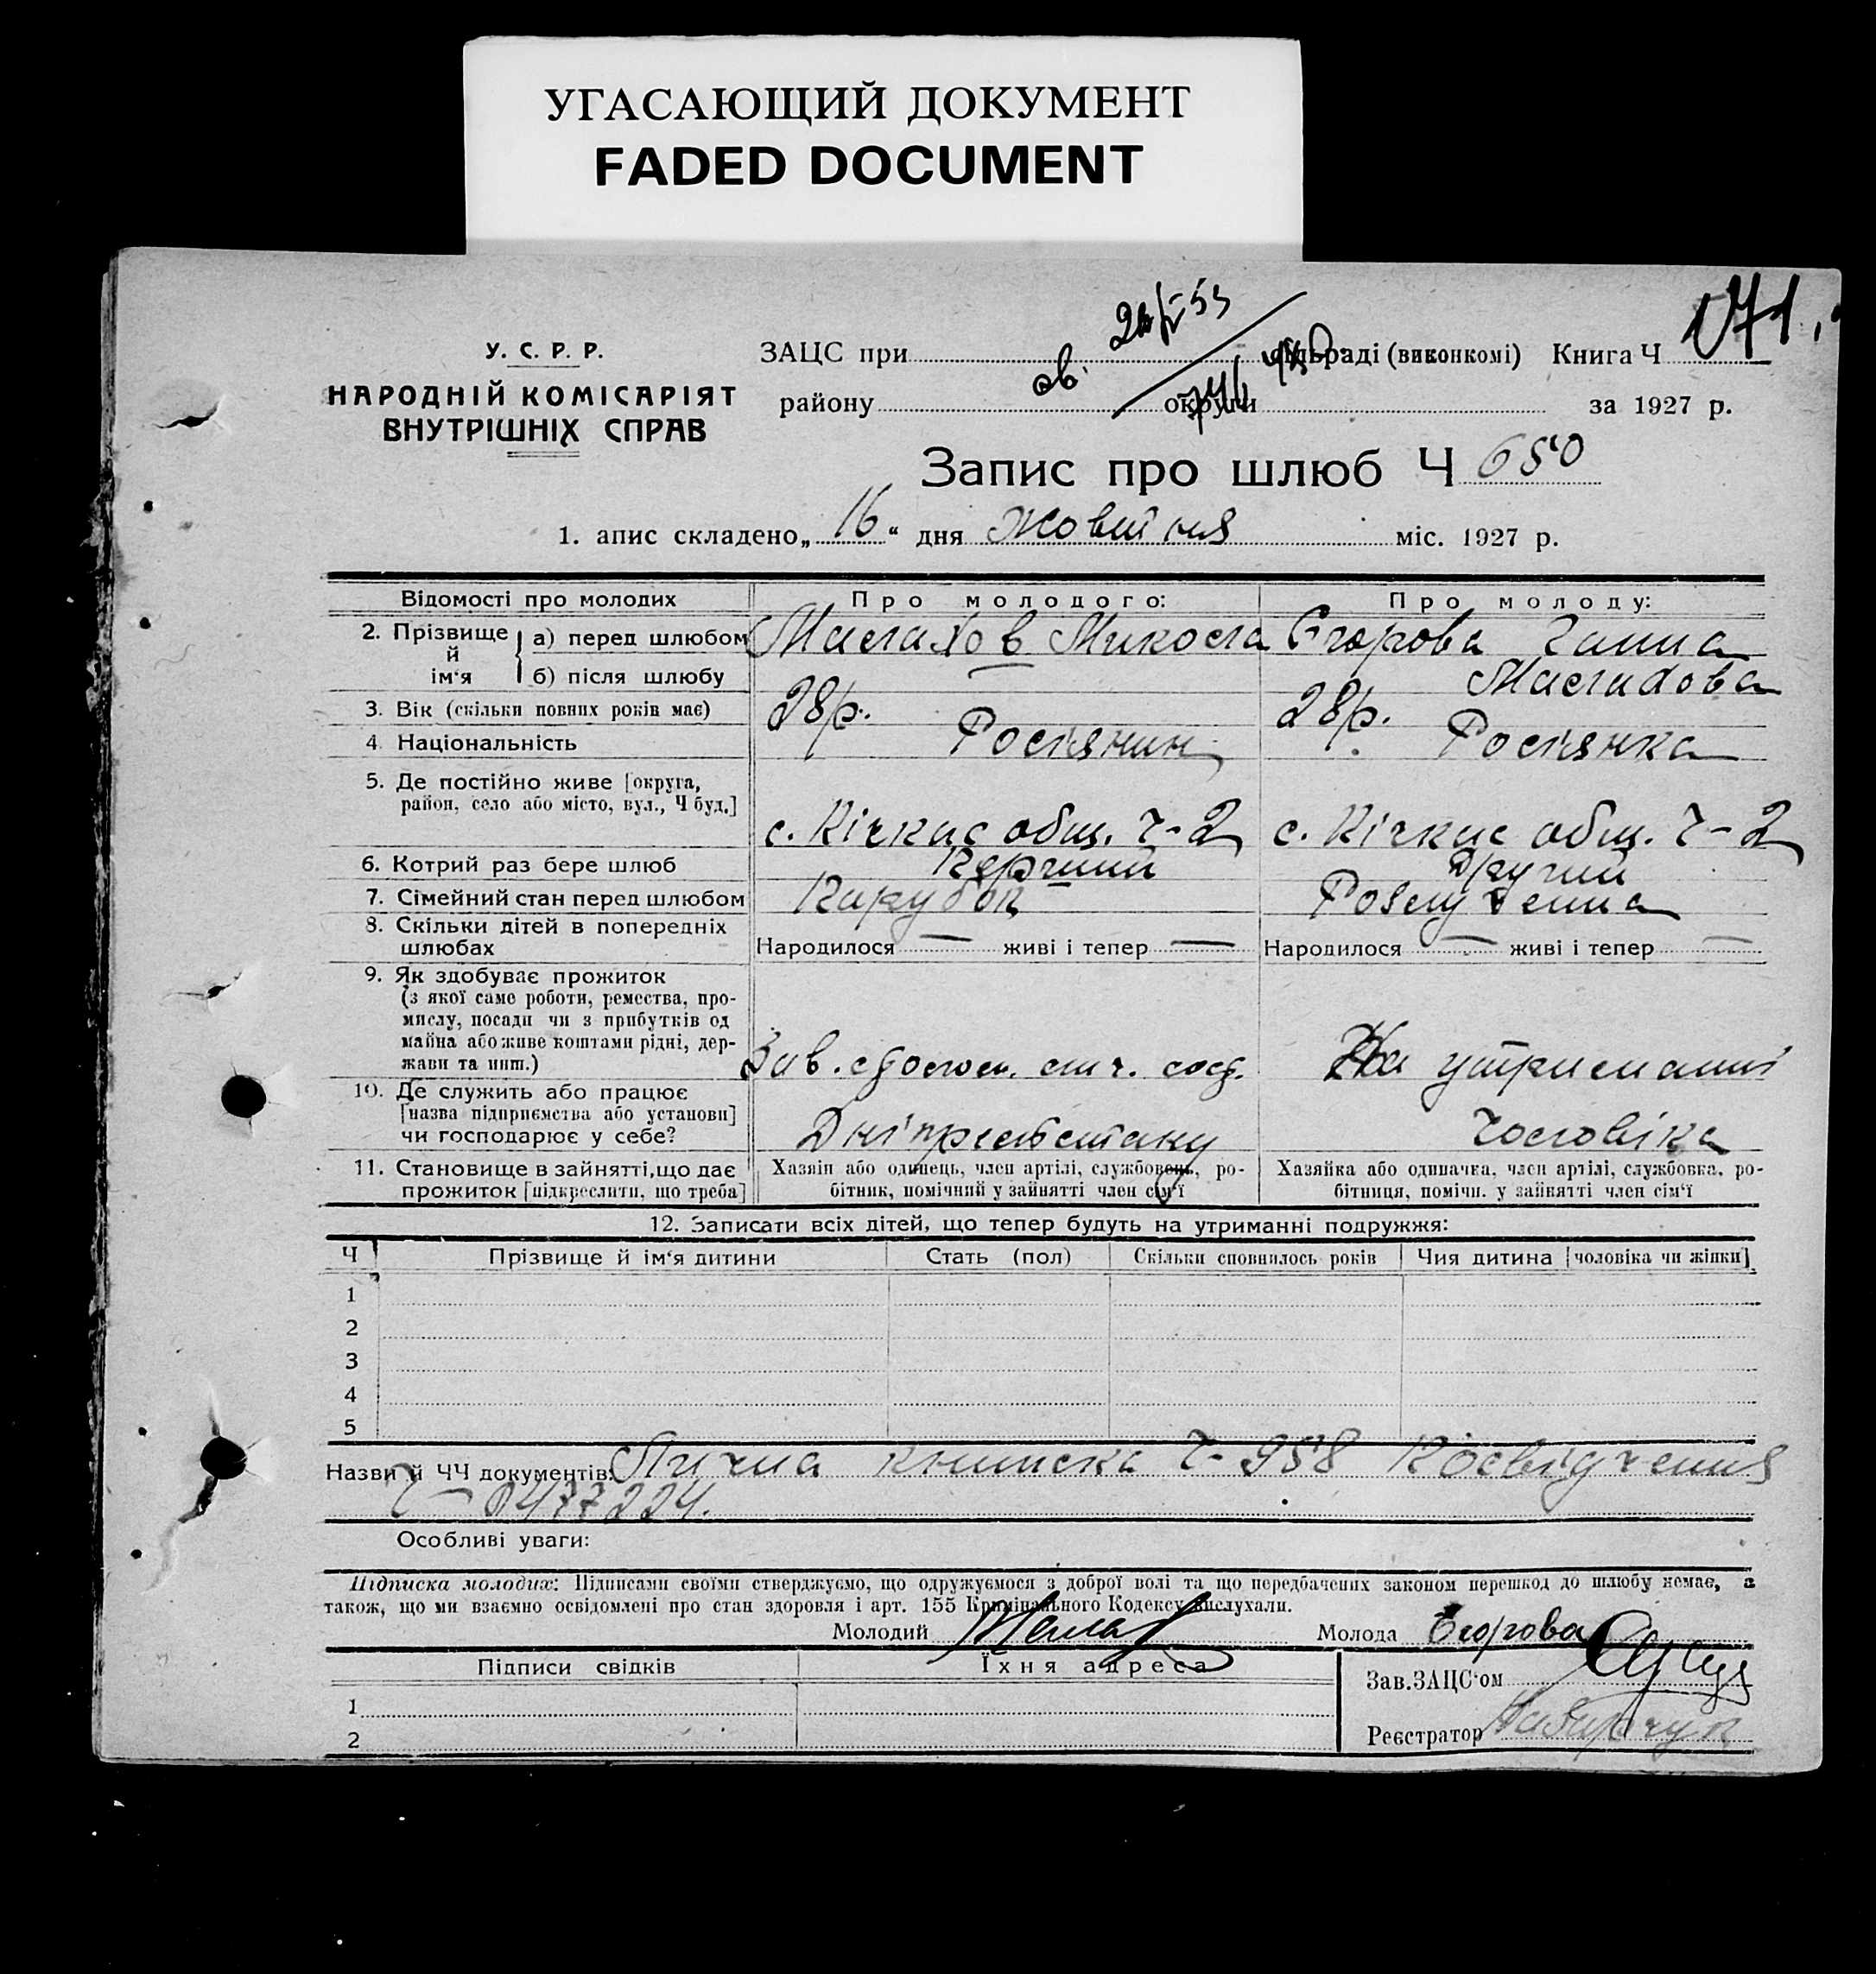 УГАСАЮЩИЙ ДОКУМЕНТ
FADED DOCUMENT
171.
У. С. Р. Р.
НАРОДНІЙ КОМІСАРІЯТ
ВНУТРІШНІХ СПРАВ
ЗАЦС при сільраді (виконкомі) Книга Ч
району округи за 1927 р.
Запис про шлюб Ч 650
1. апис складено „16“ дня Жовтня міс. 1927 р.
Відомості про молодих Про молодого: Про молоду:
2. Прізвище й ім‘я а) перед шлюбом Микола Єгорова Ганна
б) після шлюбу
3. Вік (скільки повних років має) 28р. 28р.
4. Національність Росіянин Росіянка
5. Де постійно живе [округа,
район, село або місто, вул., Ч буд.]
с. Кічкас общ. ч-2 с. Кічкас общ. ч-2
6. Котрий раз бере шлюб Перший Другий
7. Сімейний стан перед шлюбом Парубок Розлучена
8. Скільки дітей в попередніх
шлюбах Народилося — живі і тепер — Народилося — живі і тепер —
9. Як здобуває прожиток
(з якої саме роботи, ремества, про-
мислу, посади чи з прибутків од
майна або живе коштами рідні, дер-
жави та инш.)
Зав. На утриманні
10. Де служить або працює
[назва підприємства або установи]
чи господарює у себе? чоловіка
11. Становище в зайнятті, що дає
прожиток [підкреслити, що треба]
Хазяїн або одинець, член артілі, службовець, ро-
бітник, помічний у зайнятті член сім‘ї
Хазяйка або одиначка, член артілі, службовка, ро-
бітниця, помічн. у зайнятті член сім‘ї
12. Записати всіх дітей, що тепер будуть на утриманні подружжя:
Ч Прізвище й ім‘я дитини Стать (пол) Скільки сповнилось років Чия дитина [чоловіка чи жінки]
1
2
3
4
5
Назви й ЧЧ документів: Лічна книжка Ч-958 Посвідчення
Ч- 0477224.
Особливі уваги:
Підписка молодих: Підписами своїми стверджуємо, що одружуємося з доброї волі та що передбачених законом перешкод до шлюбу немає, а
також, що ми взаємно освідомлені про стан здоровля і арт. 155 Кримінального Кодексу вислухали.
Молодий Молода Єгорова
Підписи свідків Їхня адреса
Зав. ЗАЦС‘ом
1
Реєстратор
2